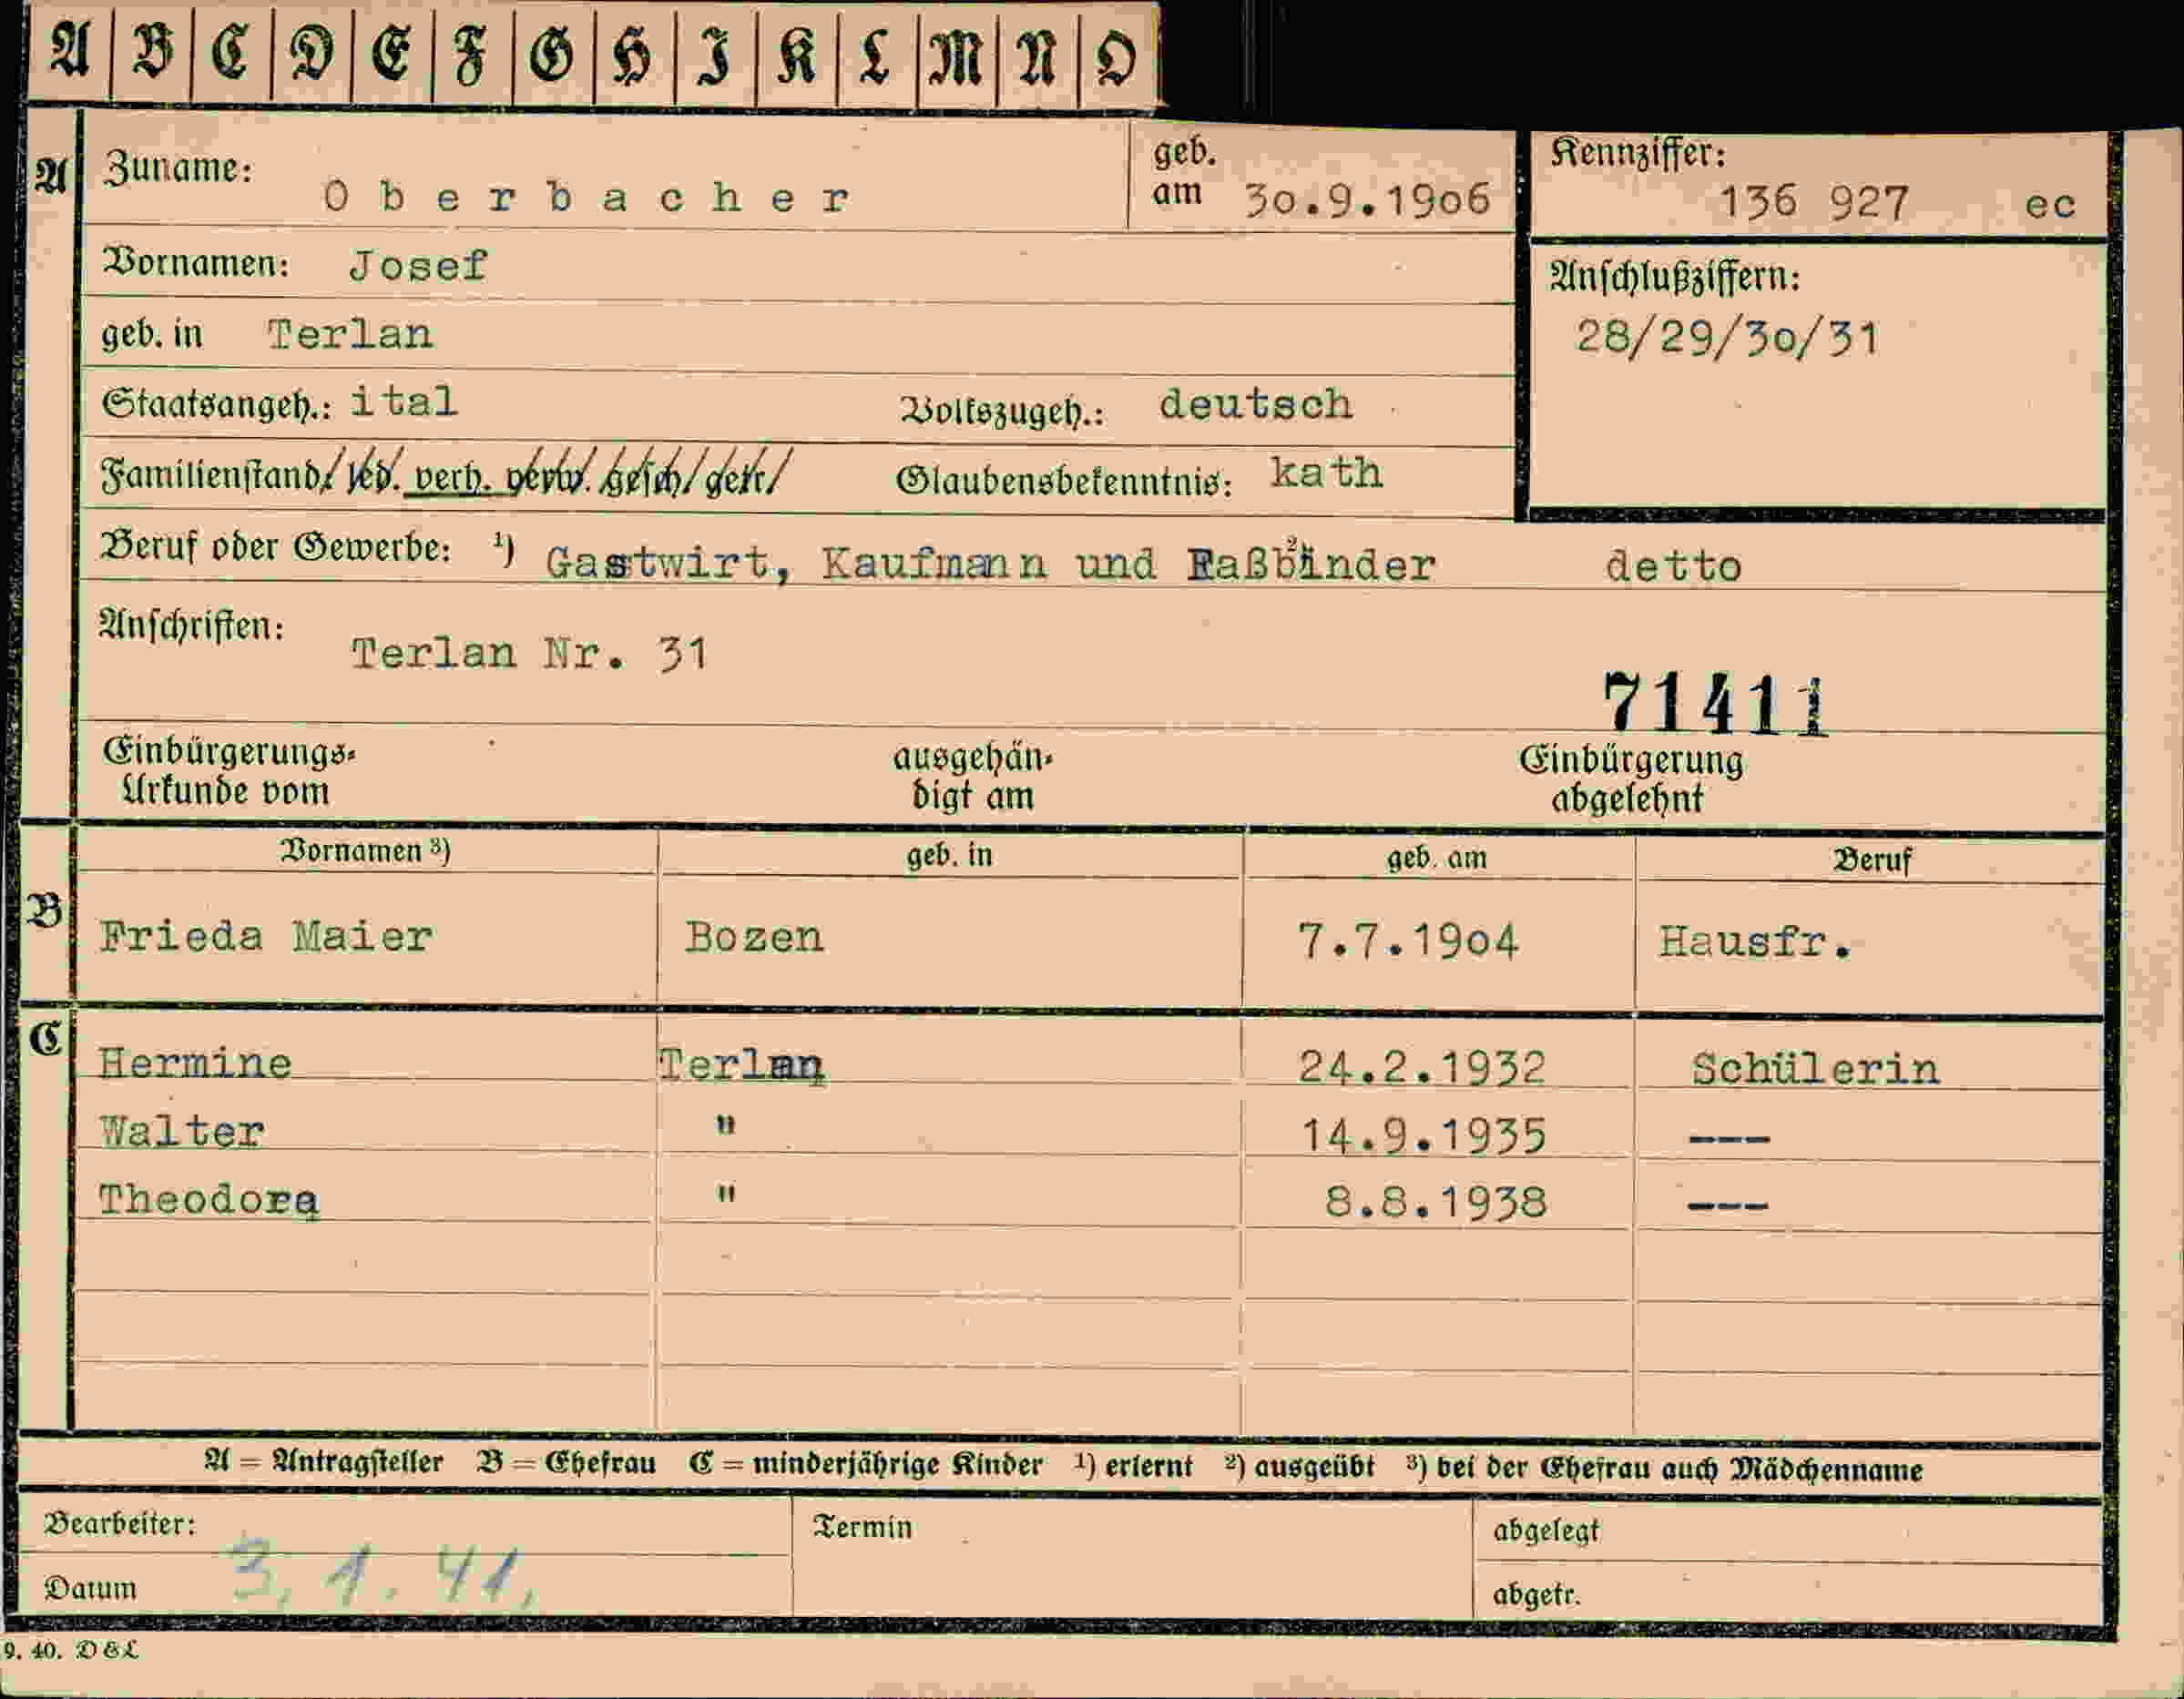 A B C D E F G H I K L M N O
A Zuname: Oberbacher geb. am 30.9.1906 Kennziffer: 136 927 ec
Vornamen: Josef Anschlußziffern:
geb. in Terlan 28/29/30/31
Staatsangeh.: ital Volkszugeh.: deutsch
Familienstand: led. verh. verw. gesch. getr. Glaubensbekenntnis: kath
Beruf oder Gewerbe: ¹) Gastwirt, Kaufmann und Faßbinder ²) detto
Anschriften: Terlan Nr. 31
71411
Einbürgerungs- ausgehän- Einbürgerung
Urkunde vom digt am abgelehnt
Vornamen ³) geb. in geb. am Beruf
B Frieda Maier Bozen 7.7.1904 Hausfr.
C Hermine Terlan 24.2.1932 Schülerin
Walter " 14.9.1935 ---
Theodora " 8.8.1938 ---
A = Antragsteller B = Ehefrau C = minderjährige Kinder ¹) erlernt ²) ausgeübt ³) bei der Ehefrau auch Mädchenname
Bearbeiter: Termin abgelegt
Datum 3. 1. 41. abgetr.
9. 40. D & L